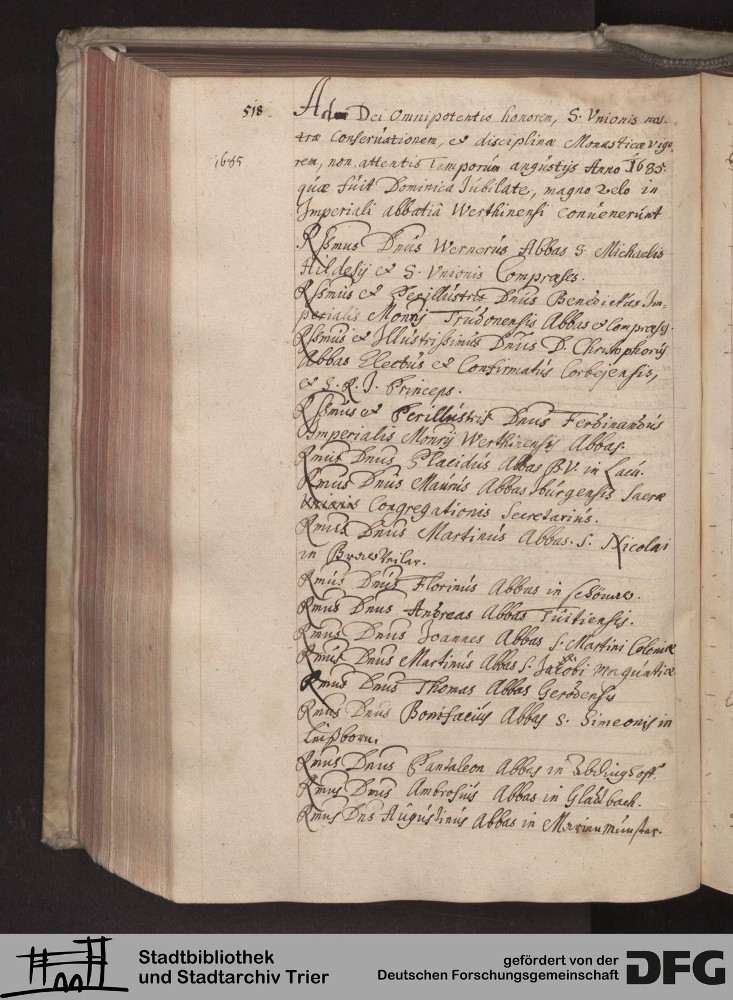 518
Ad Dei Omnipotentis honorem, S. Vnionis nos-
træ Conseruationem, et disciplinæ Monasticæ vigo-
1685
rem, non attentis Temporum angustijs Anno 1685.
quæ fuit Dominica Iubilate, magno zelo in
Imperiali abbatia Werthinensi conuenerunt
Rssmus Dnus Wernerus Abbas S. Michaelis
Hildesij et S. Vnionis Compræses.
Rssmus et Perillustris Dnus Benedictus Im-
perialis Monrij Trudonensis Abbas et Compræses.
Rssmus et Illustrissimus Dnus D. Christophorus
Abbas Electus et Confirmatus Corbejensis,
et S. R. I. Princeps.
Rssmus et Perillustris Dnus Ferdinandus
Imperialis Monrij Werthinensis Abbas.
Rmus Dnus Placidus Abbas B.V. in Lacu.
Rmus Dnus Maurus Abbas Iburgensis Sacræ
Vnionis Congregationis Secretarius.
Rmus Dnus Martinus Abbas S. Nicolai
in Braweiler.
Rmus Dnus Florinus Abbas in Schönaw.
Rmus Dnus Andreas Abbas Tuitiensis.
Rmus Dnus Joannes Abbas S. Martini Coloniæ
Rmus Dnus Martinus Abbas S. Jacobi Maguntiæ
Rmus Dnus Thomas Abbas Gerodensis
Rmus Dnus Bonifacius Abbas S. Simeonis in
Leißborn.
Rmus Dnus Pantaleon Abbas in Abdinghoff.
Rmus Dnus Ambrosius Abbas in Gladbach.
Rmus Dns Augustinus Abbas in Marienmünster.
Stadtbibliothek
und Stadtarchiv Trier
gefördert von der
Deutschen Forschungsgemeinschaft
DFG